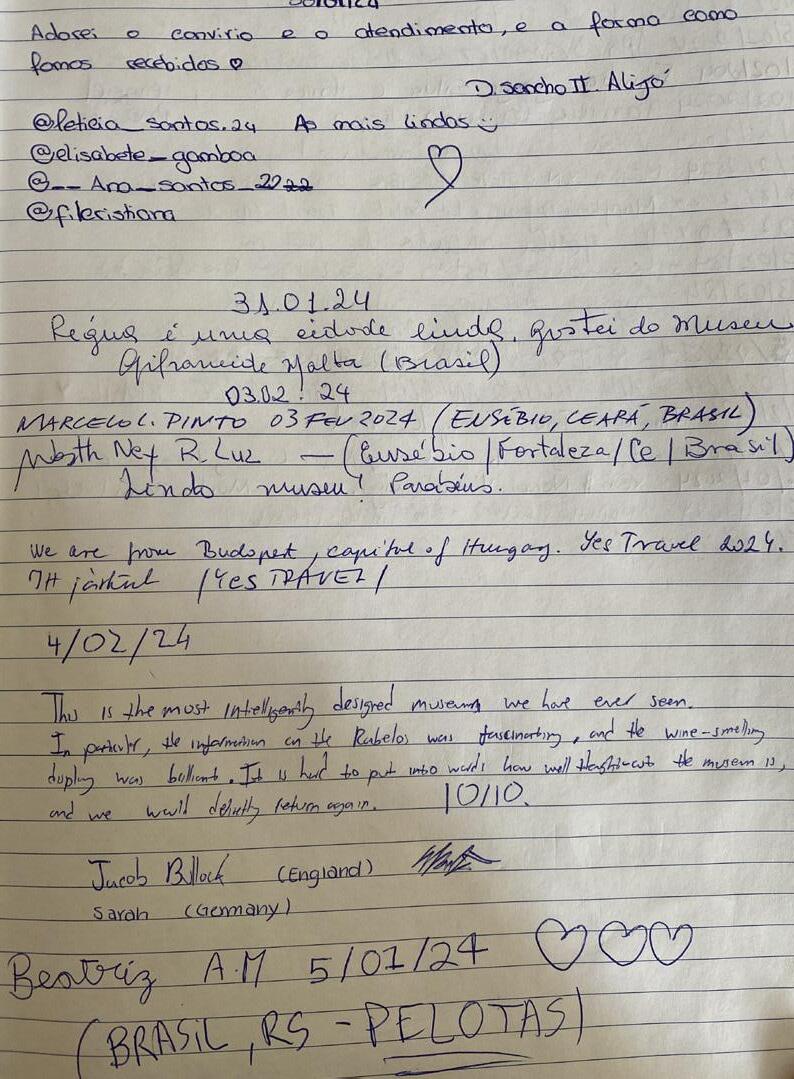 Adorei o convirio e o atendimento, e a forma como
fomos recebidos ♡
D. Sancho II. Alijó
@leticia_santos.24 As mais lindas
@elisabete_gamboa
@__Ana_santos_2022
@filecristiana
31.01.24
Régua é uma cidade linda, gostei do Museu
Malta (Brasil)
03.02.24
MARCELO C. PINTO 03 FEV 2024 (EUSÉBIO, CEARÁ, BRASIL)
Ney R. Luz — (Eusébio/Fortaleza/Ce/Brasil)
Lindo museu! Parabéns.
We are from Budapest, capital of Hungary. Yes Travel 2024.
Itt jártunk /YES TRAVEL/
4/02/24
This is the most intelligently designed museum we have ever seen.
In particular, the information on the Rabelos was fascinating, and the wine-smelling
display was brilliant. It is hard to put into words how well thought-out the museum is,
and we would definitely return again. 10/10.
Jacob Bullock (England)
Sarah (Germany)
Beatriz A.M 5/01/24
(BRASIL, RS - PELOTAS)